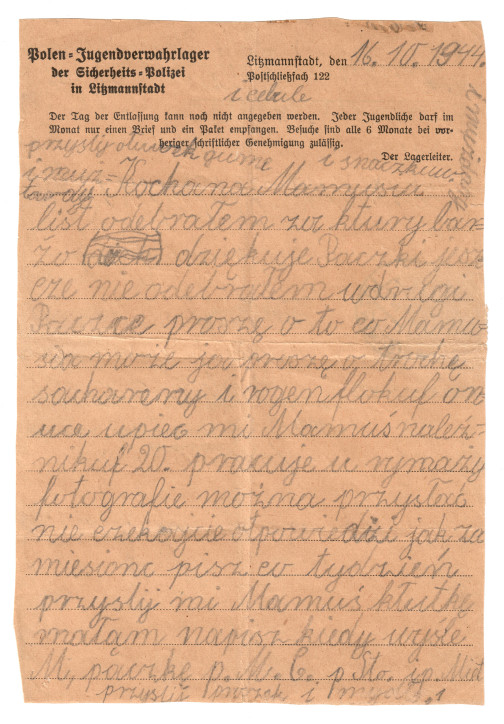 Polen-Jugendverwahrlager
der Sicherheits-Polizei
in Litzmannstadt
Litzmannstadt, den 16. 10. 1944.
Postschließfach 122
i cebule
Der Tag der Entlassung kann noch nicht angegeben werden. Jeder Jugendliche darf im
Monat nur einen Brief und ein Paket empfangen. Besuche sind alle 6 Monate bei vor-
heriger schriftlicher Genehmigung zulässig.
Der Lagerleiter.
przyslij ołuwek gume i snaczkuw
Kochana Mamusiu
list odebrałem za ktury bar-
zo dziękuje Paczki jesz
cze nie odebrałem w drógi
Paczce proszę o to co Mamu
sia może ja proszę o trochę
sachareny i rogenflokuf on
uce upiec mi Mamuś naleź-
nikuf 20. pracuje u rymazy
fotografie można przysłać
nie czekajcie otpowiedzi jak za
miesionc pisz co tydzień
przyslij mi Mamuś kłutkę
małam napisz kiedy wyśle
M, paczkę p. M. C. p Sto. sp. Miot
przyslij proszek i mydło